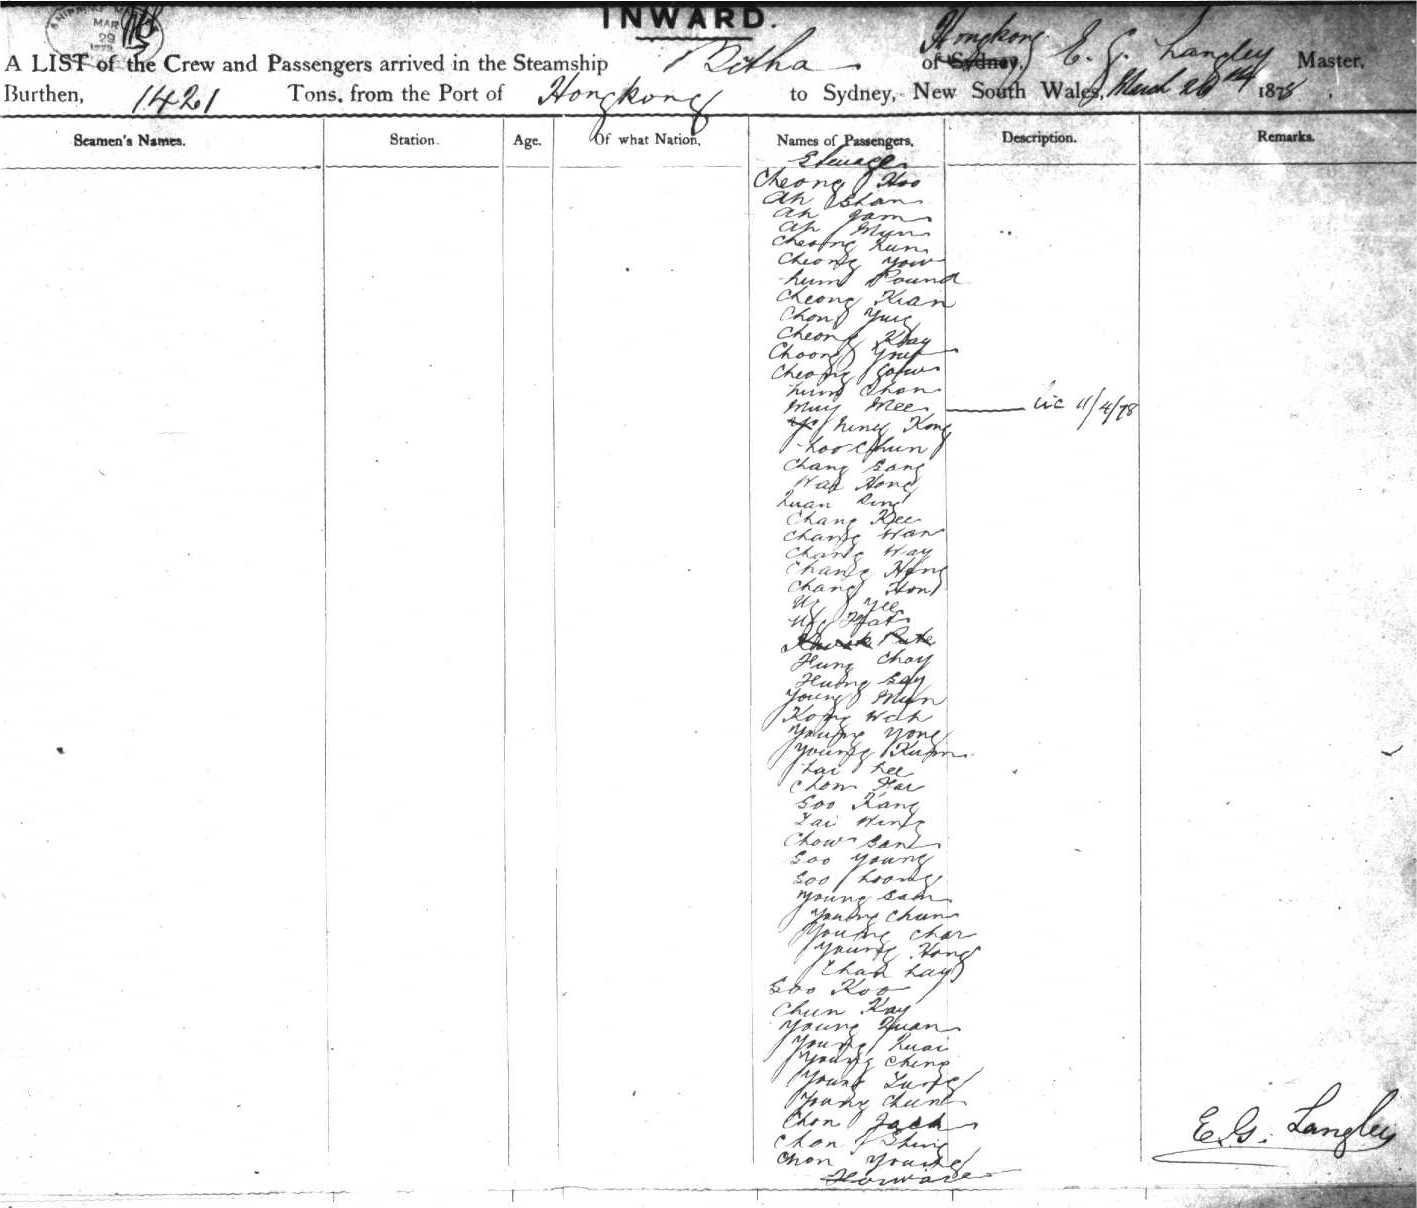 SHIPPING MAR 29 1878
INWARD.
A LIST of the Crew and Passengers arrived in the Steamship Botha of Sydney, Hongkong E. G. Langley Master,
Burthen, 1421 Tons, from the Port of Hongkong to Sydney, New South Wales, March 26th 1878.
Seamen's Names. Station. Age. Of what Nation. Names of Passengers. Description. Remarks.
Steerage
Cheong Hoo
Ah Shan
Ah Jam
Ah Mun
Cheong Lun
Cheong Yow
Lum Pound
Cheong Kian
Chong Yug
Cheong Kay
Choong Youp
Cheong Gow
Lum Chon
Muy Mee Lic 11/4/78
Ling Kong
Loo Chun
Chang Song
Wah Hong
Luan Sing
Chang Kee
Chang Wan
Chang Way
Chang Hong
Chang Hon
Ug Yee
Ug Fat
Hung Choy
Huong Say
Young Mun
Kong Wah
Young Yong
Young Kum
Lai Lee
Chow Hai
Goo Kang
Lai Wing
Chow San
Goo Young
Goo Loong
Young Sam
Young Chun
Young Char
Young Hong
Chah Lay
Goo Koo
Chun Kay
Young Luan
Young Luai
Young Ching
Young Lung
Young Chun
Chon Jack
Chon Shing
Chon Young
Forward
E. G. Langley